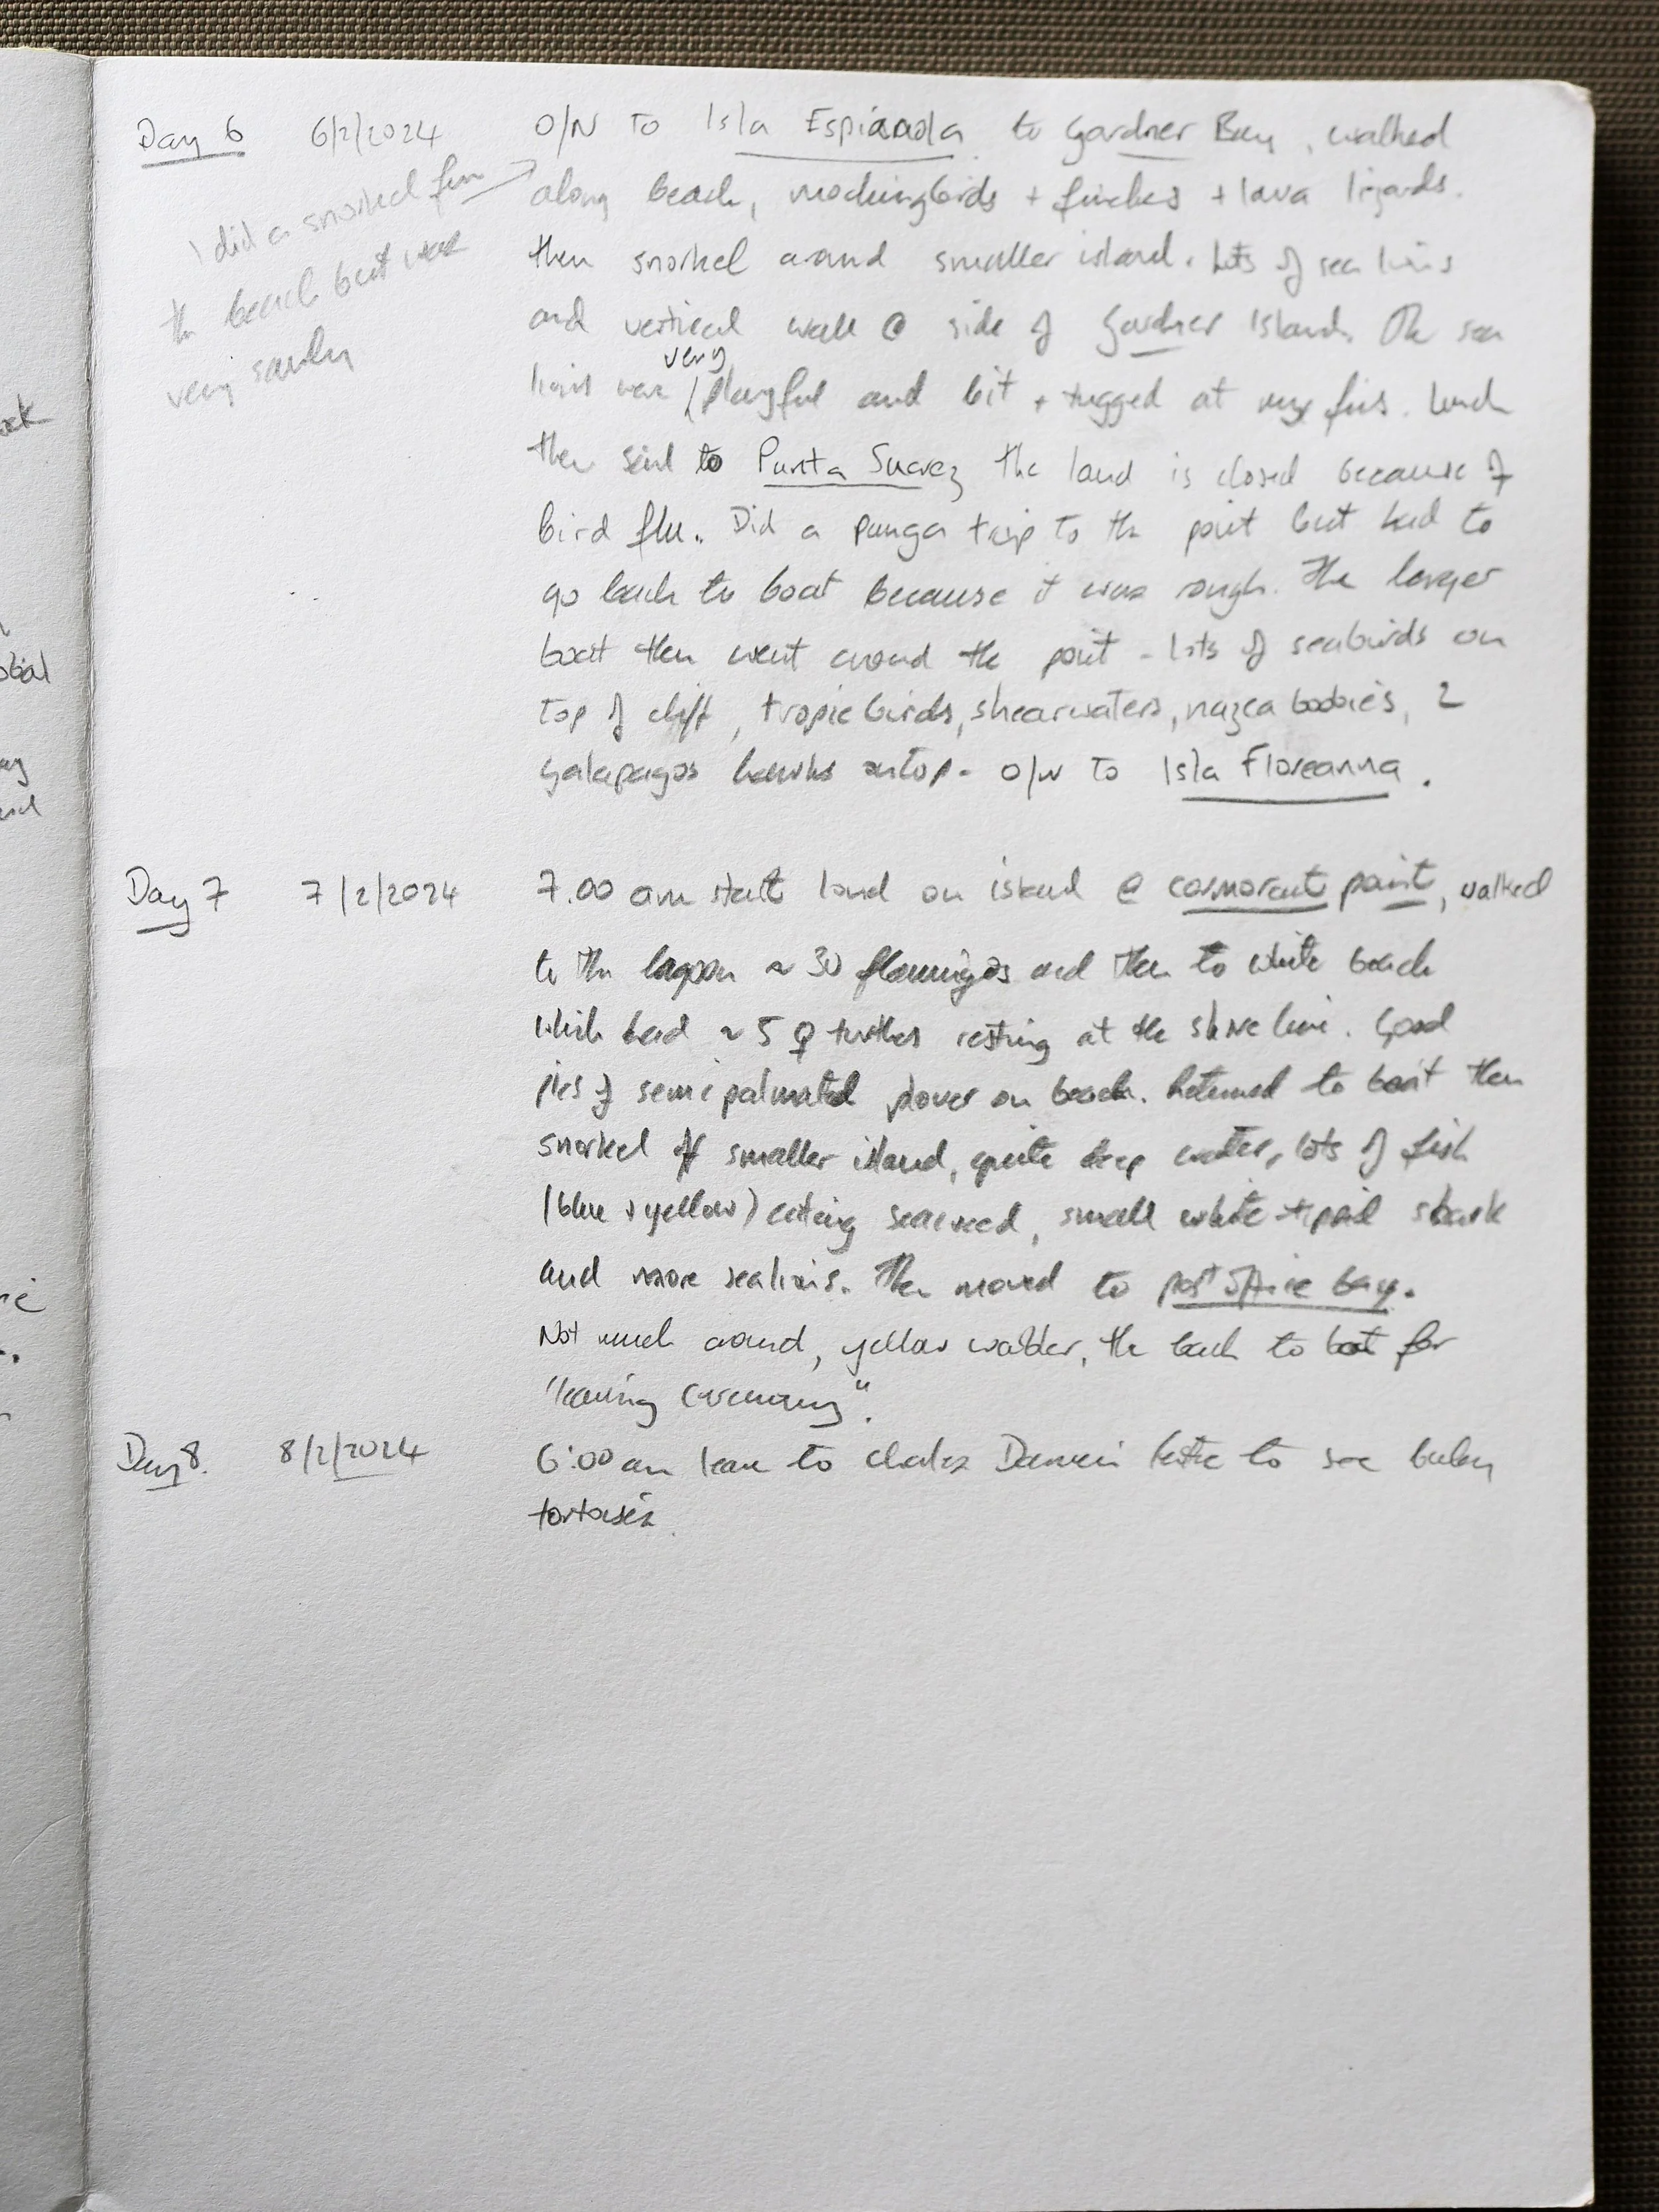 Day 6 6/2/2024 O/N to Isla Espianola to Gardner Bay, walked
along beach, mockingbirds + finches + lava lizards.
then snorkel around smaller island. Lots of sea lions
and vertical wall @ side of Gardner Island. The sea
lions were very playful and bit + tugged at my fins. Lunch
then sail to Punta Suarez the land is closed because of
bird flu. Did a panga trip to the point but had to
go back to boat because it was rough. The larger
boat then went around the point - lots of seabirds on
top of cliff, tropic birds, shearwaters, nazca boobies, 2
galapagos hawks ontop. O/N to Isla Floreanna.
I did a snorkel from
the beach but was
very sandy
Day 7 7/2/2024 7.00 am start land on island @ cormorant point, walked
to the lagoon ~ 30 flamingos and then to white beach
which had ~ 5 ♀ turtles resting at the shore line. Good
pics of semipalmated plover on beach. Returned to boat then
snorkel off smaller island, quite deep water, lots of fish
(blue + yellow) eating seaweed, small white-tipped shark
and more sealions. Then moved to post office bay.
Not much around, yellow warbler, the back to boat for
"leaving ceremony".
Day 8. 8/2/2024 6:00 am leave to Charles Darwin to see baby
tortoises.